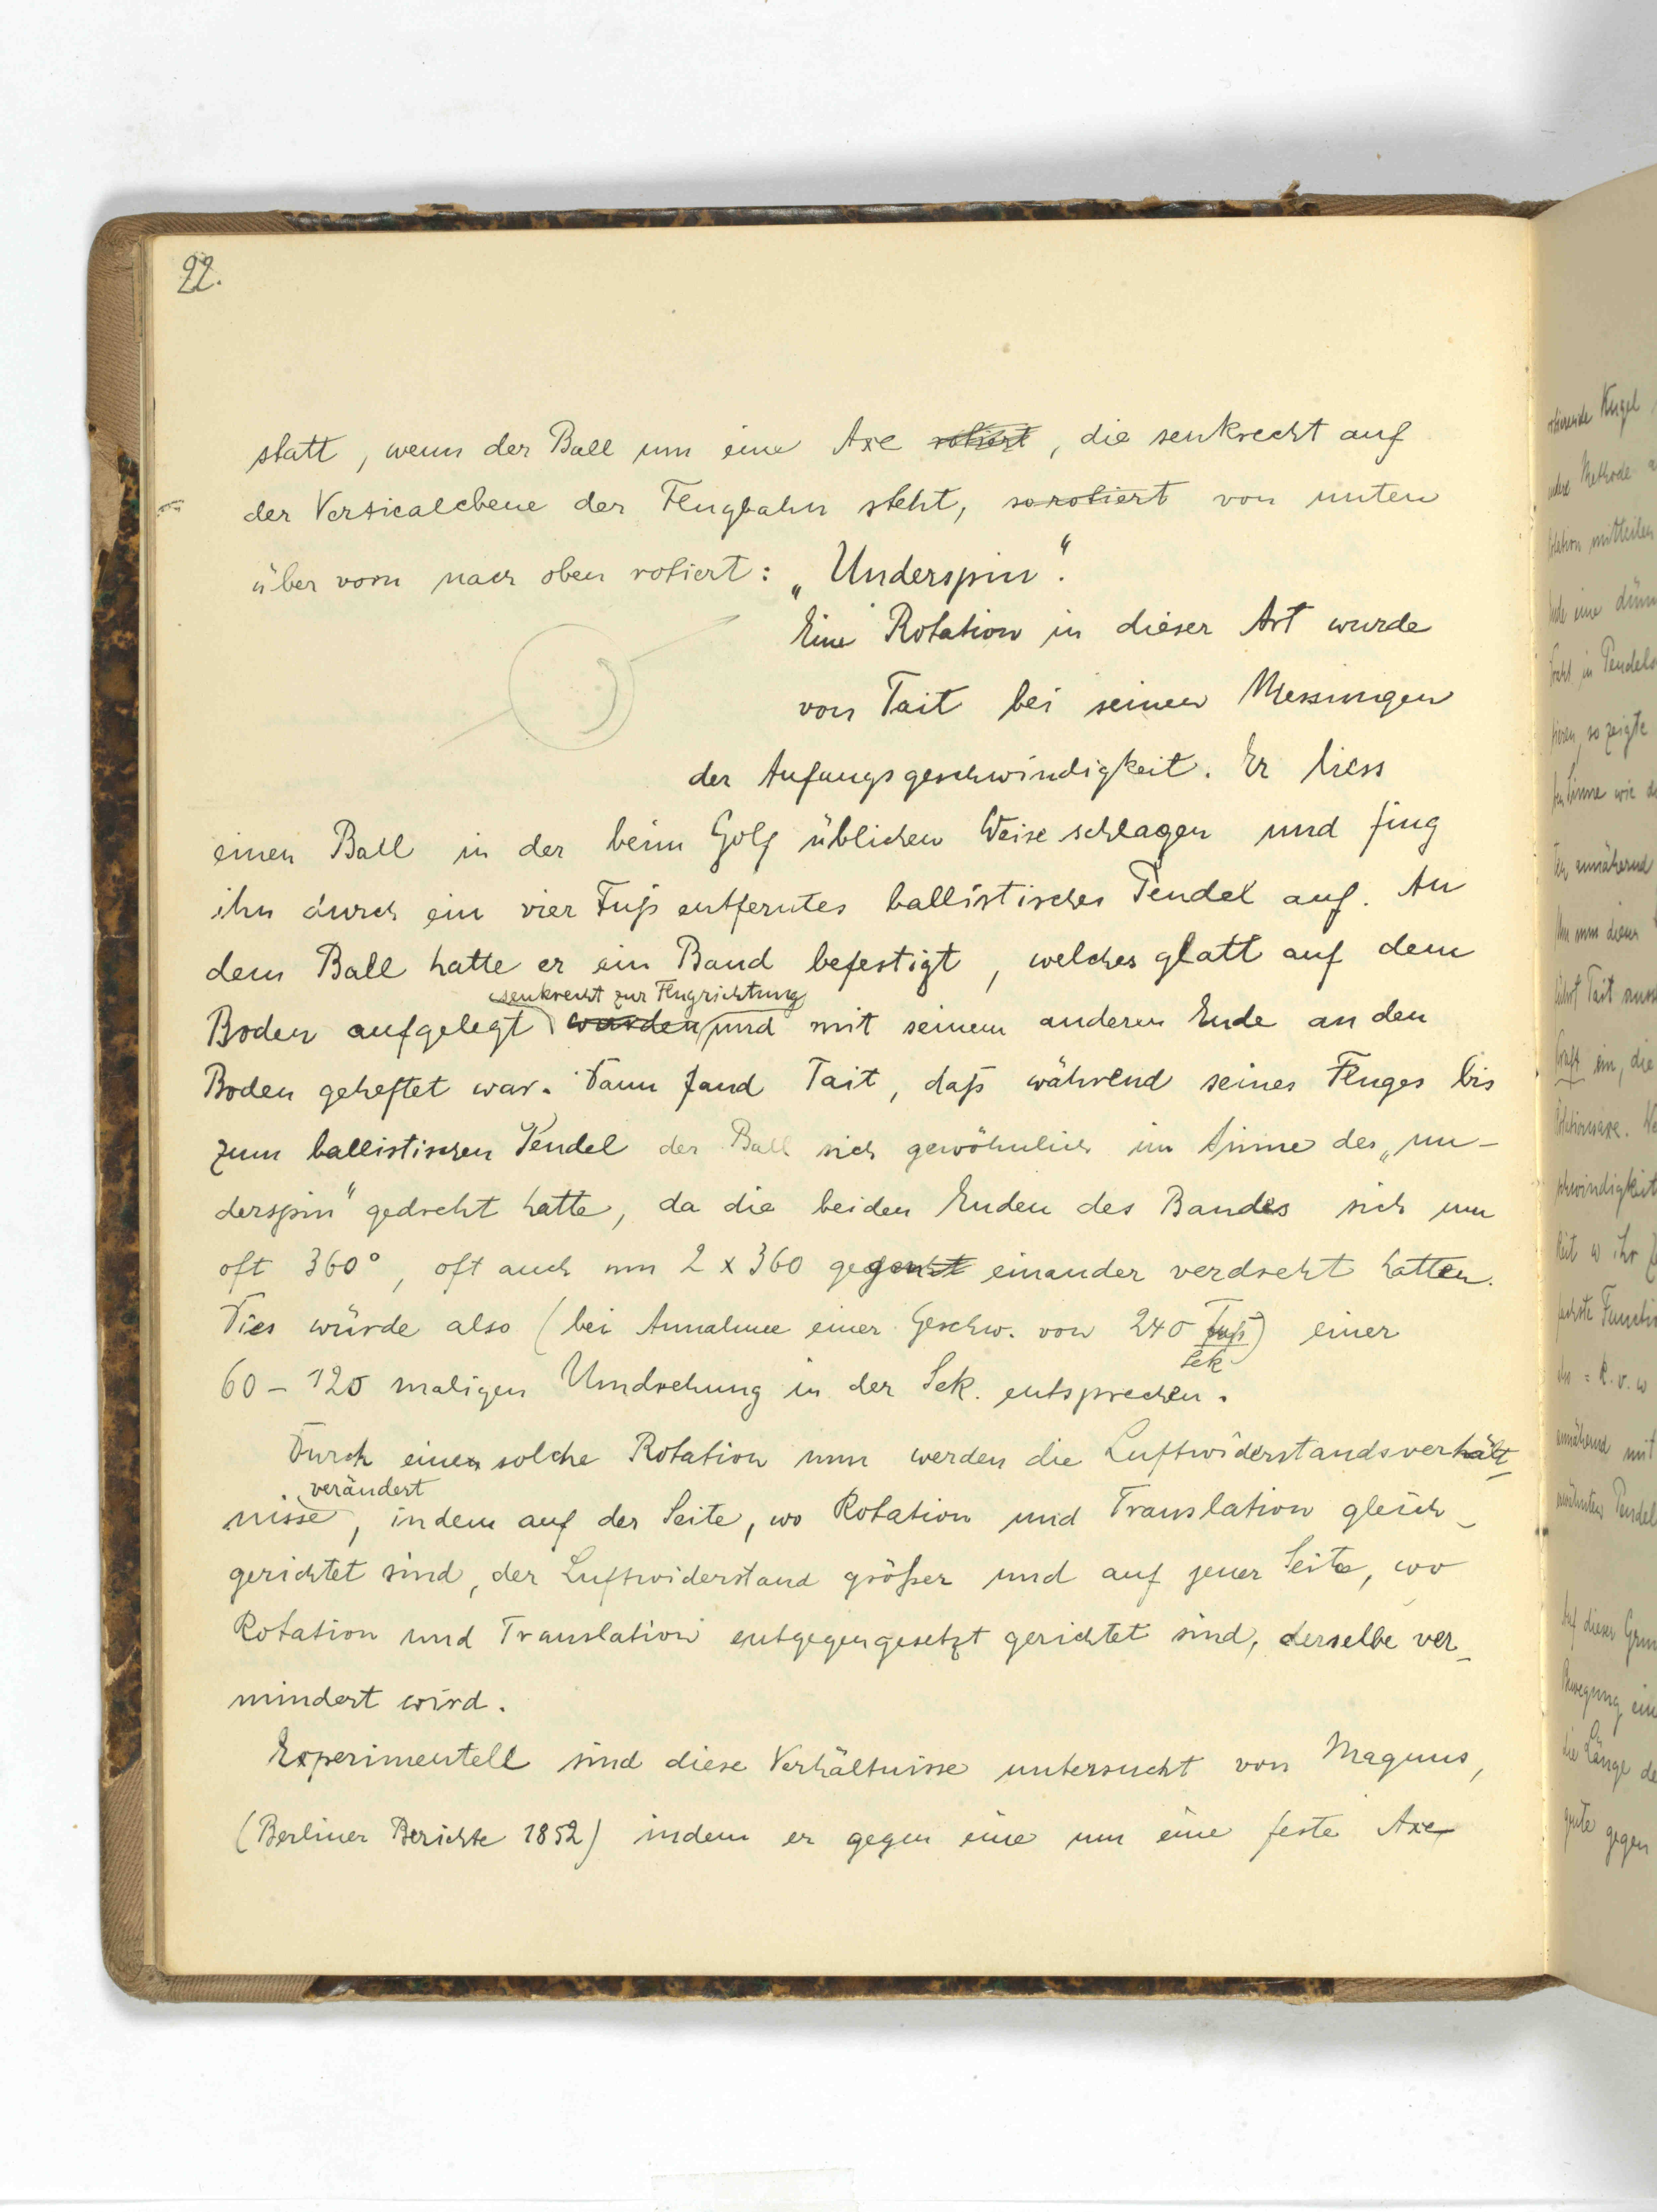 22.
statt, wenn der Ball um eine Axe rotiert, die senkrecht auf
der Verticalebene der Flugbahn steht, so rotiert von unten
über vorn nach oben rotiert: „Underspin“.
Eine Rotation in dieser Art wurde
von Tait bei seinen Messungen
der Anfangsgeschwindigkeit. Er liess
einen Ball in der beim Golf üblichen Weise schlagen und fing
ihn durch ein vier Fuß entferntes ballistisches Pendel auf. An
dem Ball hatte er ein Band befestigt, welches glatt auf dem
senkrecht zur Flugrichtung
Boden aufgelegt worden und mit seinem anderen Ende an den
Boden geheftet war. Dann fand Tait, daß während seines Fluges bis
zum ballistischen Pendel der Ball sich gewöhnlich im Sinne des „un-
derspin“ gedreht hatte, da die beiden Enden des Bandes sich um
oft 360°, oft auch um 2 x 360 gegen einander verdreht hatten.
Dies würde also (bei Annahme einer Geschw. von 240 Fuß/Sek) einer
60 – 120 maligen Umdrehung in der Sek. entsprechen.
Durch eine solche Rotation nun werden die Luftwiderstandsverhält-
verändert
nisse, indem auf der Seite, wo Rotation und Translation gleich-
gerichtet sind, der Luftwiderstand größer und auf jener Seite, wo
Rotation und Translation entgegengesetzt gerichtet sind, derselbe ver-
mindert wird.
Experimentell sind diese Verhältnisse untersucht von Magnus,
(Berliner Berichte 1852) indem er gegen eine um eine feste Axe